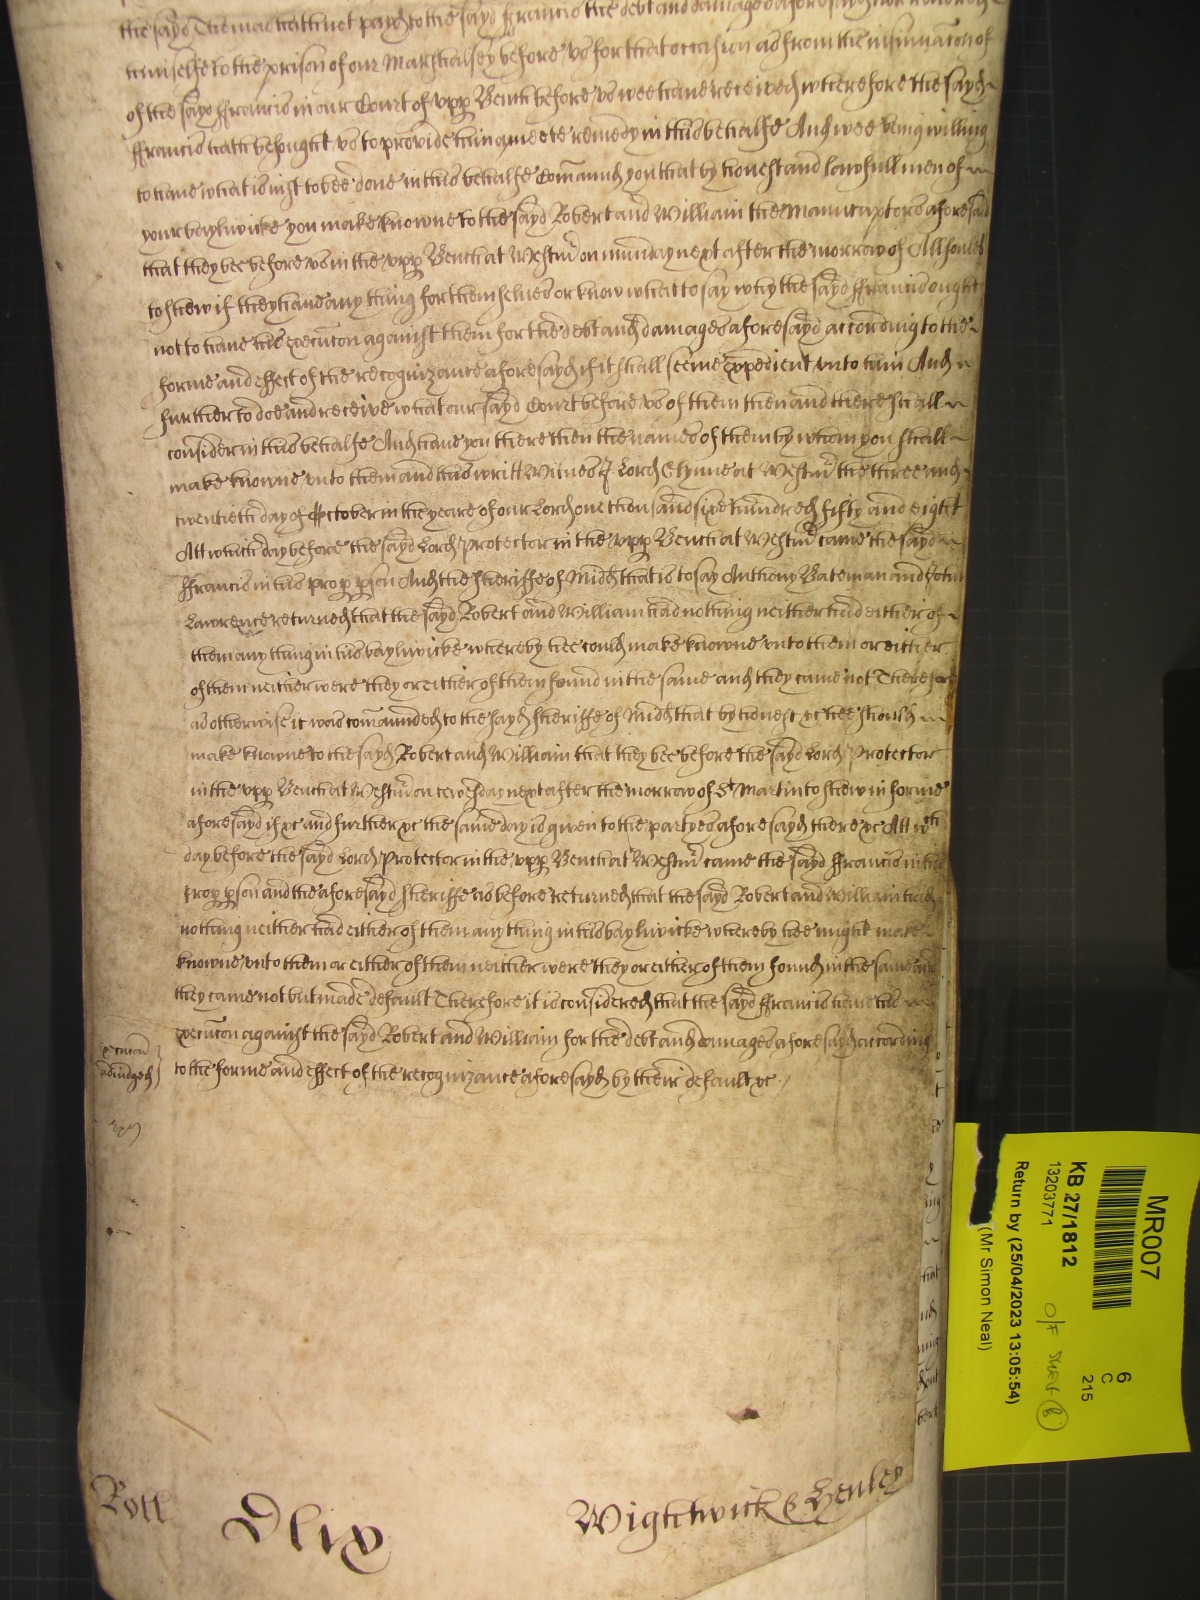 the sayd Thomas hath not payd to the sayd Francis the debt and damages aforesayd nor rendred
himselfe to the prison of our Marshalsey before vs for that occasion as from the insinuacon of
of the sayd Francis in our Court of vpp Bench before vs wee haue received wherefore the sayd
Francis hath besought vs to provide him a meete remedy in this behalfe And wee being willing
to haue what is iust to bee done in this behalfe Comaund you that by honest and lawfull men of
your baylywicke you make knowne to the sayd Robert and William the Manucaptors aforesaid
that they bee before vs in the vpp Bench at Westmr on munday next after the morrow of All soules
to shew if they haue any thing for themselues or know what to say why the sayd Francis ought
not to haue his execucon against them for the debt and damages aforesayd according to the
forme and effect of the recognizance aforesayd if it shall seeme expedient vnto him And
further to doe and receive what our sayd Court before vs of them then and there shall
consider in this behalfe And haue you there then the names of them by whom you shall
make knowne vnto them and this writt Witnes J Lord Glynne at Westmr the three and
twentieth day of October in the yeare of our Lord one thousand six hundred fifty and eight
Att which day before the sayd Lord Protector in the vpp Bench at Westmr came the sayd
Francis in his prop pson And the Sheriffe of Midd that is to say Anthony Bateman and John
Lawrence returned that the sayd Robert and William had nothing neither had either of
them any thing in his baylywicke whereby hee could make knowne vnto them or either
of them neither were they or either of them found in the same and they came not Therefore
as otherwise it was comaunded to the sayd Sheriffe of Midd that by honest &c hee should
make knowne to the sayd Robert and William that they bee before the sayd Lord Protector
in the vpp Bench at Westmr on Tewesday next after the morrow of St Martin to shew in forme
aforesayd if &c and further &c the same day is given to the partyes aforesayd there &c Att wch
day before the sayd Lord Protector in the vpp Bench at Westmr came the sayd Francis in his
prop pson and the aforesayd Sheriffe as before returned that the sayd Robert and William had
nothing neither had either of them any thing in his baylywicke whereby hee might make
knowne vnto them or either of them neither were they or either of them found in the same and
they came not but made default Therefore it is considered that the sayd Francis haue his
execucon against the sayd Robert and William for the debt and damages aforesayd according
to the forme and effect of the recognizance aforesayd by their default &c
execucon
adiudged
Roll
Dlix
Wightwick & Henley
MR007
KB 27/1812
13203771
6
C
215
O/F Shelf B
Return by (25/04/2023 13:05:54)
(Mr Simon Neal)